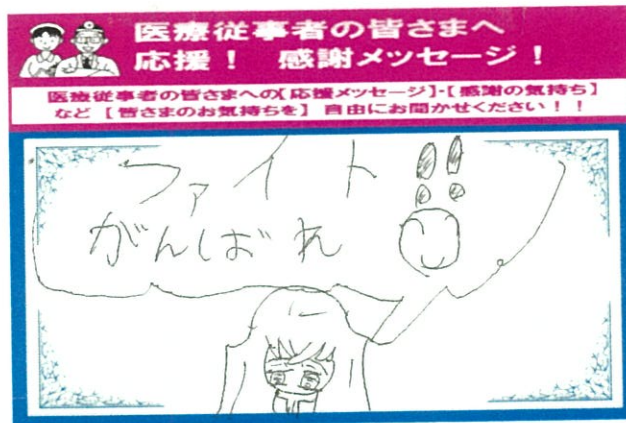 医療従事者の皆さまへ
応援！ 感謝メッセージ！
医療従事者の皆さまへの【応援メッセージ】・【感謝の気持ち】
など【皆さまのお気持ちを】自由にお聞かせください！！
ファイト!!
がんばれ